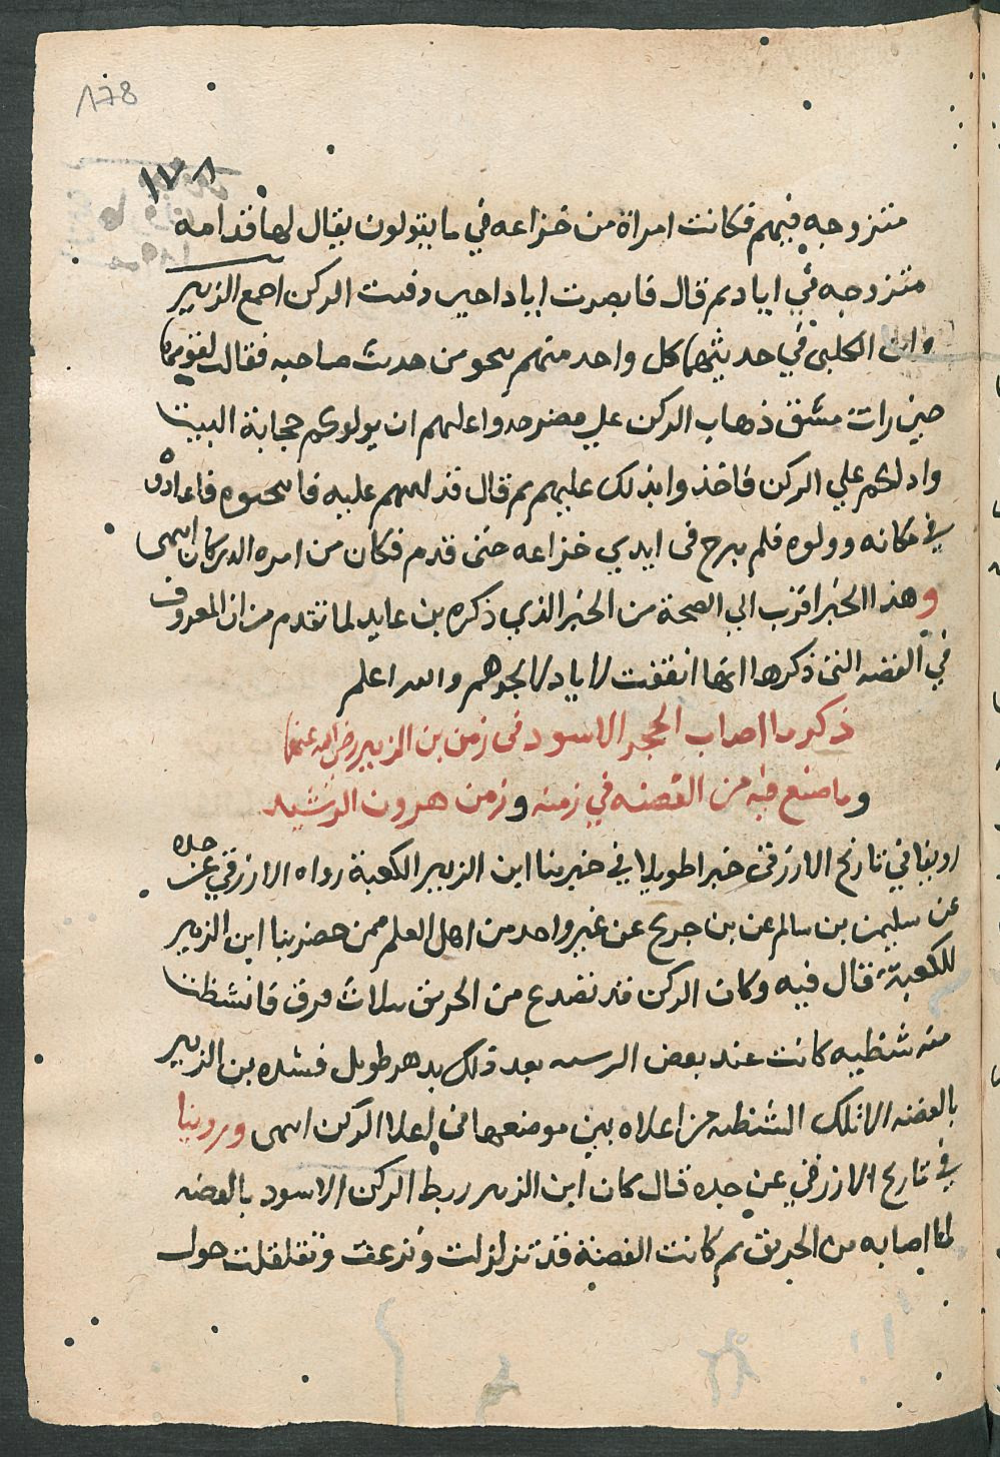 178
١٧٨
متزوجه فيهم فكانت امراة من خزاعه في ما يقولون يقال لها قدامه
متزوجه في اياد ثم قال فابصرت ايادا حين دفنت الركن اجمع الزبير
وابن الكلبي في حديثهما كل واحد منهم بنحو من حدث صاحبه فقالت لقومها
حين رات مشقة ذهاب الركن علي مضر خذوا عليهم ان يولوكم حجابة البيت
وادلكم علي الركن فاخذوا بذلك عليهم ثم قال فدلتهم عليه فابتحثوه فاعادوه
في مكانه وولوه فلم يبرح في ايدي خزاعه حتى قدم فكان من امره الذي كان انتهى
وهذا الخبر اقرب الي الصحة من الخبر الذي ذكره بن عايد لما تقدم من ان المعروف
في القصه التى ذكرها انها اتفقت لاياد لا لجرهم والله اعلم
ذكر ما اصاب الحجر الاسود في زمن بن الزبير رضي الله عنهما
وما صنع فيه من الفضه في زمنه وزمن هرون الرشيد
روينا في تاريخ الازرقي خبرا طويلا في خبر بنا ابن الزبير الكعبة رواه الازرقي عن جده
عن سليمن بن سالم عن بن جريج عن غير واحد من اهل العلم ممن حضر بنا ابن الزبير
للكعبة قال فيه وكان الركن قد تصدع من الحريق بثلاث فرق فانشظت
منه شظيه كانت عند بعض ال شيبه بعد ذلك بدهر طويل فشده بن الزبير
بالفضه الا تلك الشظيه من اعلاه بين موضعها في اعلا الركن انتهى وروينا
في تاريخ الازرقي عن جده قال كان ابن الزبير ربط الركن الاسود بالفضه
لما اصابه من الحريق ثم كانت الفضة قد تزلزلت وتزعزعت وتقلقلت حول